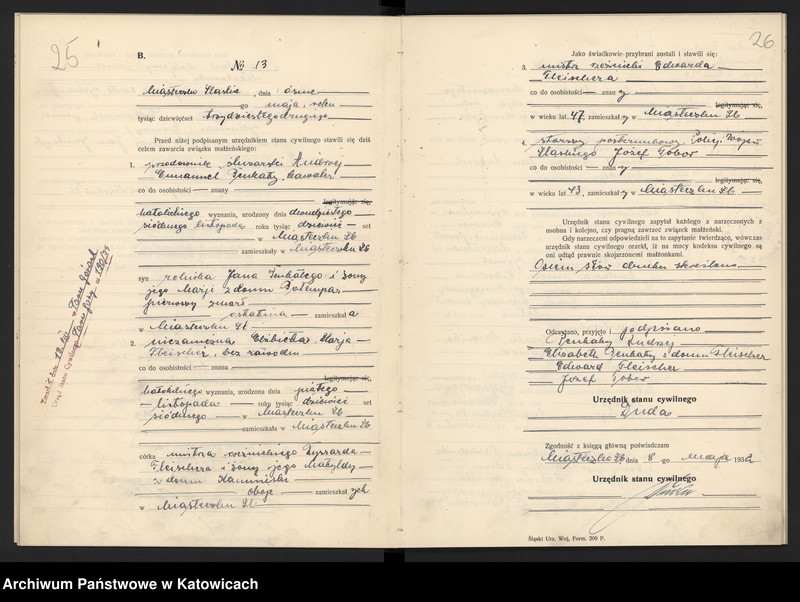 25
B.
№ 13
Miasteczko Śląskie, dnia ósme
go maja, roku
tysiąc dziewięćset trzydziestegodrugiego
Przed niżej podpisanym urzędnikiem stanu cywilnego stawili się dziś
celem zawarcia związku małżeńskiego:
1. przodownik ślusarski Andrzej
Emanuel Penkały, kawaler
co do osobistości — znany
legitymując się,
katolickiego wyznania, urodzony dnia dwudziestego
siódmego listopada roku tysiąc dziewięć — set
w Miasteczku Śl
zamieszkały w Miasteczku Śl
syn rolnika Jana Penkałego i żony
jego Marji z domu
pierwszy zmarł
ostatnia — zamieszkała
w Miasteczku Śl.
2. niezamężna Elżbieta Marja
Fleischer, bez zawodu
co do osobistości — znana
legitymując się,
katolickiego wyznania, urodzona dnia piątego
listopada — roku tysiąc dziewięć set
siódmego — w Miasteczku Śl
zamieszkała w Miasteczku Śl
córka mistrza rzeźnickiego Ryszarda
Fleischera i żony jego Matyldy
z domu Kaminski
oboje — zamieszkałych
w Miasteczku Śl.
Urząd Stanu Cywilnego
26
Jako świadkowie przybrani zostali i stawili się:
3. mistrz rzeźnicki Edwarda
Fleischera
co do osobistości — znany
legitymując się,
w wieku lat 47, zamieszkały w Miasteczku Śl
4. starszy posterunkowy Policji Wojew
Śląskiego Józef Tobor
co do osobistości — znany
legitymując się,
w wieku lat 43, zamieszkały w Miasteczku Śl
Urzędnik stanu cywilnego zapytał każdego z narzeczonych z
osobna i kolejno, czy pragną zawrzeć związek małżeński.
Gdy narzeczeni odpowiedzieli na to zapytanie twierdząco, wówczas
urzędnik stanu cywilnego orzekł, iż na mocy kodeksu cywilnego są
oni odtąd prawnie skojarzonemi małżonkami.
Osiem słów druku skreślono
Odczytano, przyjęto i podpisano
Penkały Andrzej
Elisabeth Penkały z domu Fleischer
Edward Fleischer
Józef Tobor
Urzędnik stanu cywilnego
Duda
Zgodność z księgą główną poświadczam
Miasteczko Śl dnia 8 go maja 1932
Urzędnik stanu cywilnego
Śląski Urz. Woj. Form. 209 P.
Archiwum Państwowe w Katowicach